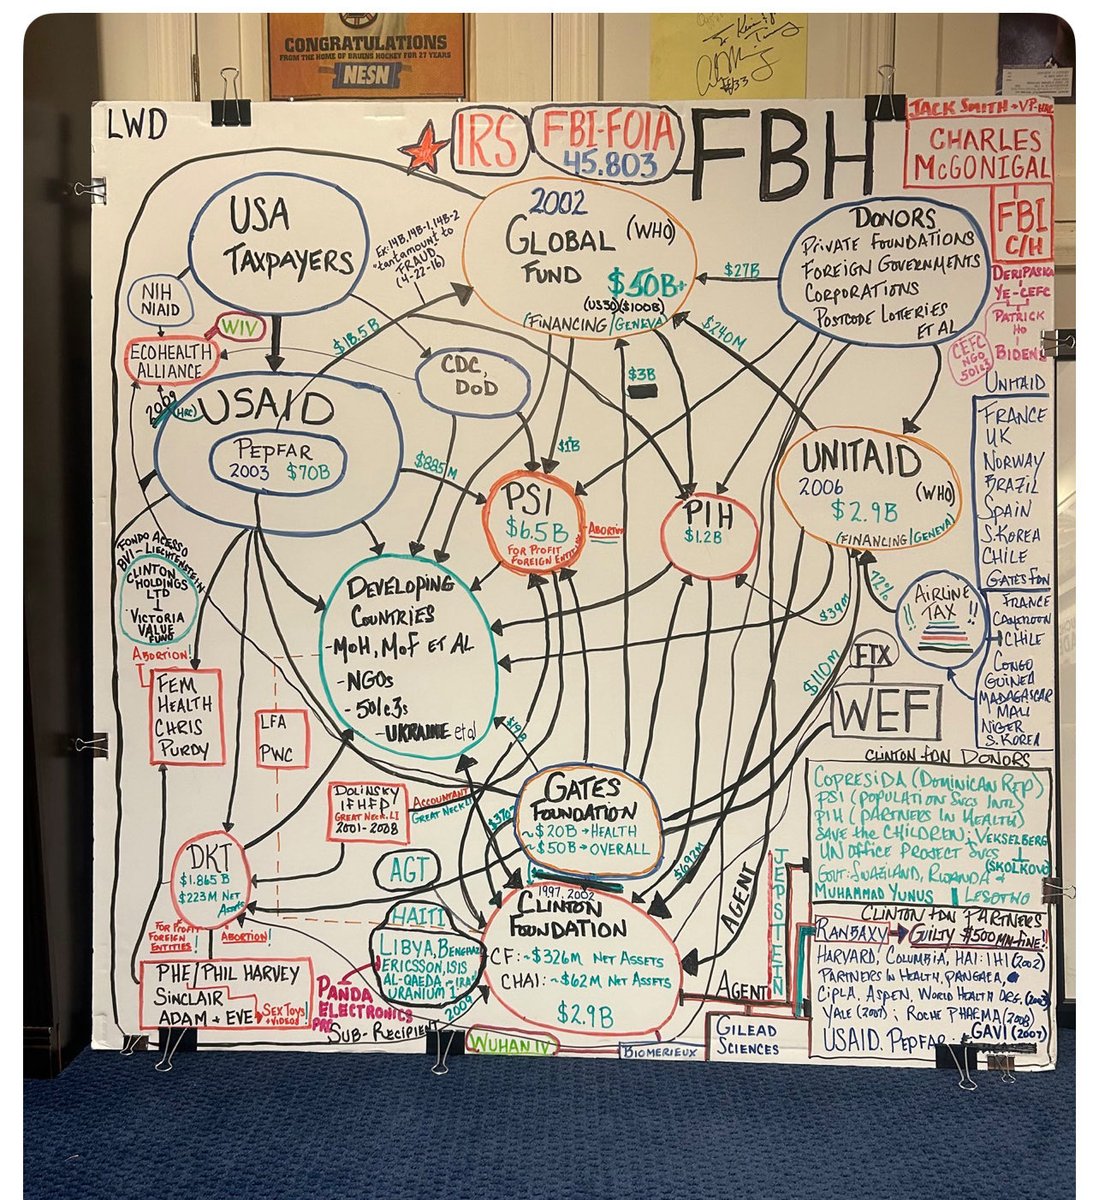 CONGRATULATIONS
FROM THE HOME OF BRUINS HOCKEY FOR 27 YEARS
NESN
#33
LWD
IRS
FBI-FOIA
45.803
FBH
JACK SMITH → VP-HAG
CHARLES
McGONIGAL
FBI
C/H
DERIPASKA
YE-CEFC
PATRICK
HO
BIDENS
CEFC
NGO
501C3
USA
TAXPAYERS
EX: 14B, 14B-1, 14B-2
"tantamount to
FRAUD"
(4-22-16)
2002
GLOBAL (WHO)
FUND
$50B+
($100B)
(FINANCING/GENEVA)
DONORS
PRIVATE FOUNDATIONS
FOREIGN GOVERNMENTS
CORPORATIONS
POSTCODE LOTTERIES
ET AL
$27B
$240M
$18.5B
$3B
NIH
NIAID
WIV
ECOHEALTH
ALLIANCE
2009
(HRC)
USAID
PEPFAR
2003 $70B
CDC,
DOD
$885M
$1B
PSI
$6.5B
FOR PROFIT
FOREIGN ENTITIES
ABORTION
PIH
$1.2B
UNITAID
2006 (WHO)
$2.9B
(FINANCING/GENEVA)
UNITAID
FRANCE
UK
NORWAY
BRAZIL
SPAIN
S. KOREA
CHILE
GATES FDN
72%
AIRLINE
TAX
!! !!
FRANCE
CAMEROON
CHILE
CONGO
GUINEA
MADAGASCAR
MALI
NIGER
S. KOREA
$39M
$110M
FTX
WEF
FONDO ACESSO
BVI-LIECHTENSTEIN
CLINTON
HOLDINGS
LTD
I
VICTORIA
VALUE
FUND
ABORTION!
FEM
HEALTH
CHRIS
PURDY
DEVELOPING
COUNTRIES
-MOH, MOF ET AL
-NGOS
-501C3S
-UKRAINE et al
LFA
PWC
$19B
DOLINSKY
IFHFP
GREAT NECK, LI
2001-2008
ACCOUNTANT
GREAT NECK LI
GATES
FOUNDATION
~$20B → HEALTH
~$50B → OVERALL
$692M
AGENT
DKT
$1.865 B
$223M NET
ASSETS
FOR PROFIT
FOREIGN
ENTITIES!
ABORTION!
AGT
HAITI
LIBYA, BENGHAZI
ERICSSON, ISIS
AL-QAEDA-IRAQ
URANIUM 1
2009
PANDA
ELECTRONICS
PRC
SUB-RECIPIENT
1997, 2002
CLINTON
FOUNDATION
CF: ~$326M NET ASSETS
CHAI: ~$62M NET ASSETS
$2.9B
PHE/PHIL HARVEY
SINCLAIR
ADAM + EVE
SEX TOYS
+VIDEOS
WUHAN IV
BIOMERIEUX
GILEAD
SCIENCES
AGENT
JEPSTEIN
CLINTON FDN DONORS
COPRESIDA (DOMINICAN REP)
PSI (POPULATION SVCS INTL)
PIH (PARTNERS IN HEALTH)
SAVE THE CHILDREN; VEKSELBERG
UN OFFICE PROJECT SVCS
(SKOLKOVO)
GOVT: SWAZILAND, RWANDA +
MUHAMMAD YUNUS LESOTHO
CLINTON FDN PARTNERS
RANBAXY → GUILTY $500MM FINE!!
HARVARD, COLUMBIA, HAI: IHI (2002)
PARTNERS IN HEALTH, PANGAEA,
CIPLA, ASPEN, WORLD HEALTH ORG. (2003)
YALE (2007); ROCHE PHARMA (2008)
USAID, PEPFAR, GAVI (2007)